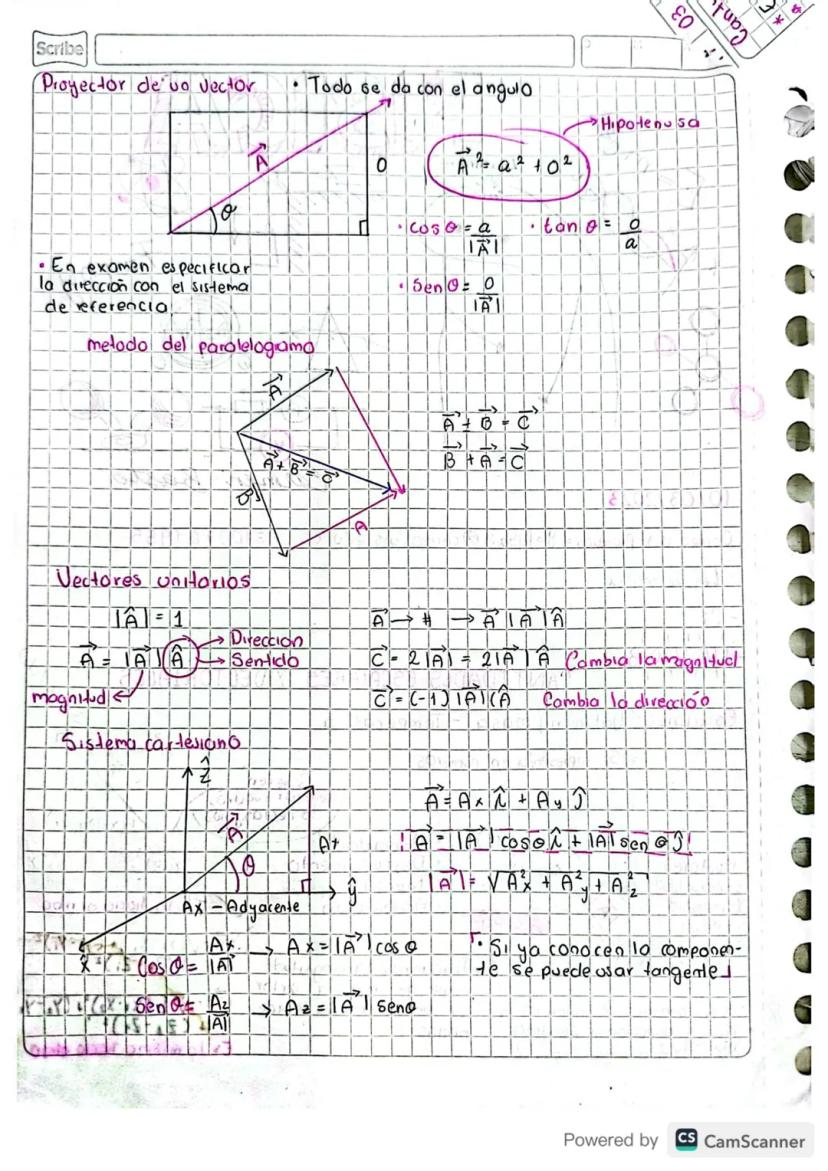 03
Scribe
Proyector de un vector
• Todo se da con el angulo
A
O
θ
Hipotenusa
A² = a² + o²
• cos θ = a / |A|
• tan θ = o / a
• Sen θ = o / |A|
• En examen especificar
la dirección con el sistema
de referencia.
metodo del paralelogramo
A
A + B = C
B
A
A + B = C
B + A = C
Vectores unitarios
|Â| = 1
A = |A| (Â) → Direccion
→ Sentido
magnitud
A → # → A |A| Â
C = 2|A| = 2|A| Â Cambia la magnitud
C = (-1) |A| (Â Cambia la dirección
Sistema cartesiano
ẑ
A
θ
A+
ŷ
Ax - Adyacente
x̂
A = Ax î + Ay ĵ
A = |A| cos θ î + |A| sen θ ĵ
|A| = √A²x + A²y + A²z
Cos θ = Ax / |A| → Ax = |A| cos θ
Sen θ = Az / |A| → Az = |A| senθ
• Si ya conocen la componen-
te se puede usar tangente
Powered by CS CamScanner